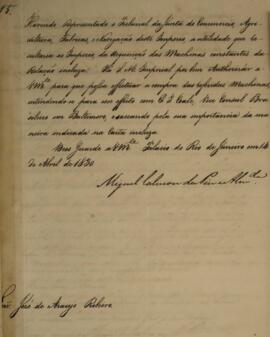 15.
Havendo Representado o Tribunal da Junta do Commercio, Agri-
cultura, Fabricas, e Navegação deste Imperio a utilidade que re-
sultaria ao Imperio da acquisição das Machinas constantes da
Relação incluza: Ha S. M. Imperial por bem Authorizar a
V Mce para que possa effectuar a compra das referidas Machinas,
entendendo-se para esse effeito com C. I. Vice Consul Bra-
sileiro em Baltimore, e sacando pela sua importancia da ma-
neira indicada na Carta incluza.
Deos Guarde a V Mce Palacio do Rio de Janeiro em 14
de Abril de 1830
Miguel Calmon du Pin e Almda
Snr. José de Araujo Ribeiro